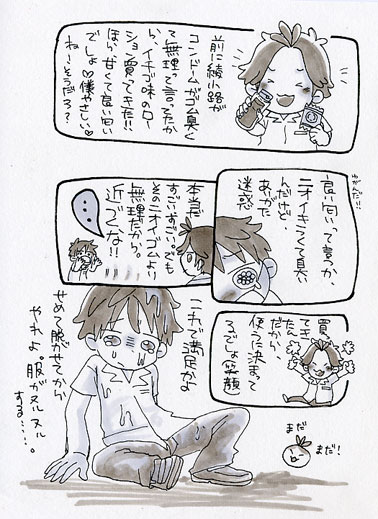 前に綾小路が
コンドームがゴム臭く
て無理て言ってたか
ら、イチゴ味のロー
ション買ってきた!!
ほら、甘くて良い匂い
でしょ♡僕やさしい♡
ねーそうだろ?
良い匂いって言うか、
ニオイキツくて臭い
んだけど、
ありがた
迷惑
本当だ
すごいすごい。でも
そのニオイゴムより
無理だから。
近づくな!!
・・・
買っ
てき
たん
だから、
使うに決まって
るでしょ笑顔
で満足かよ
せめて
せてから
やれよ。服がヌルヌル
する……。
まだ
まだ!